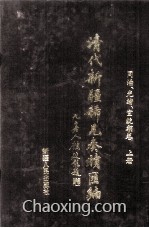 同治、光绪、宣统朝卷 上册
清代新疆稀見奏牘匯編
新疆人民出版社
Chaoxing.com